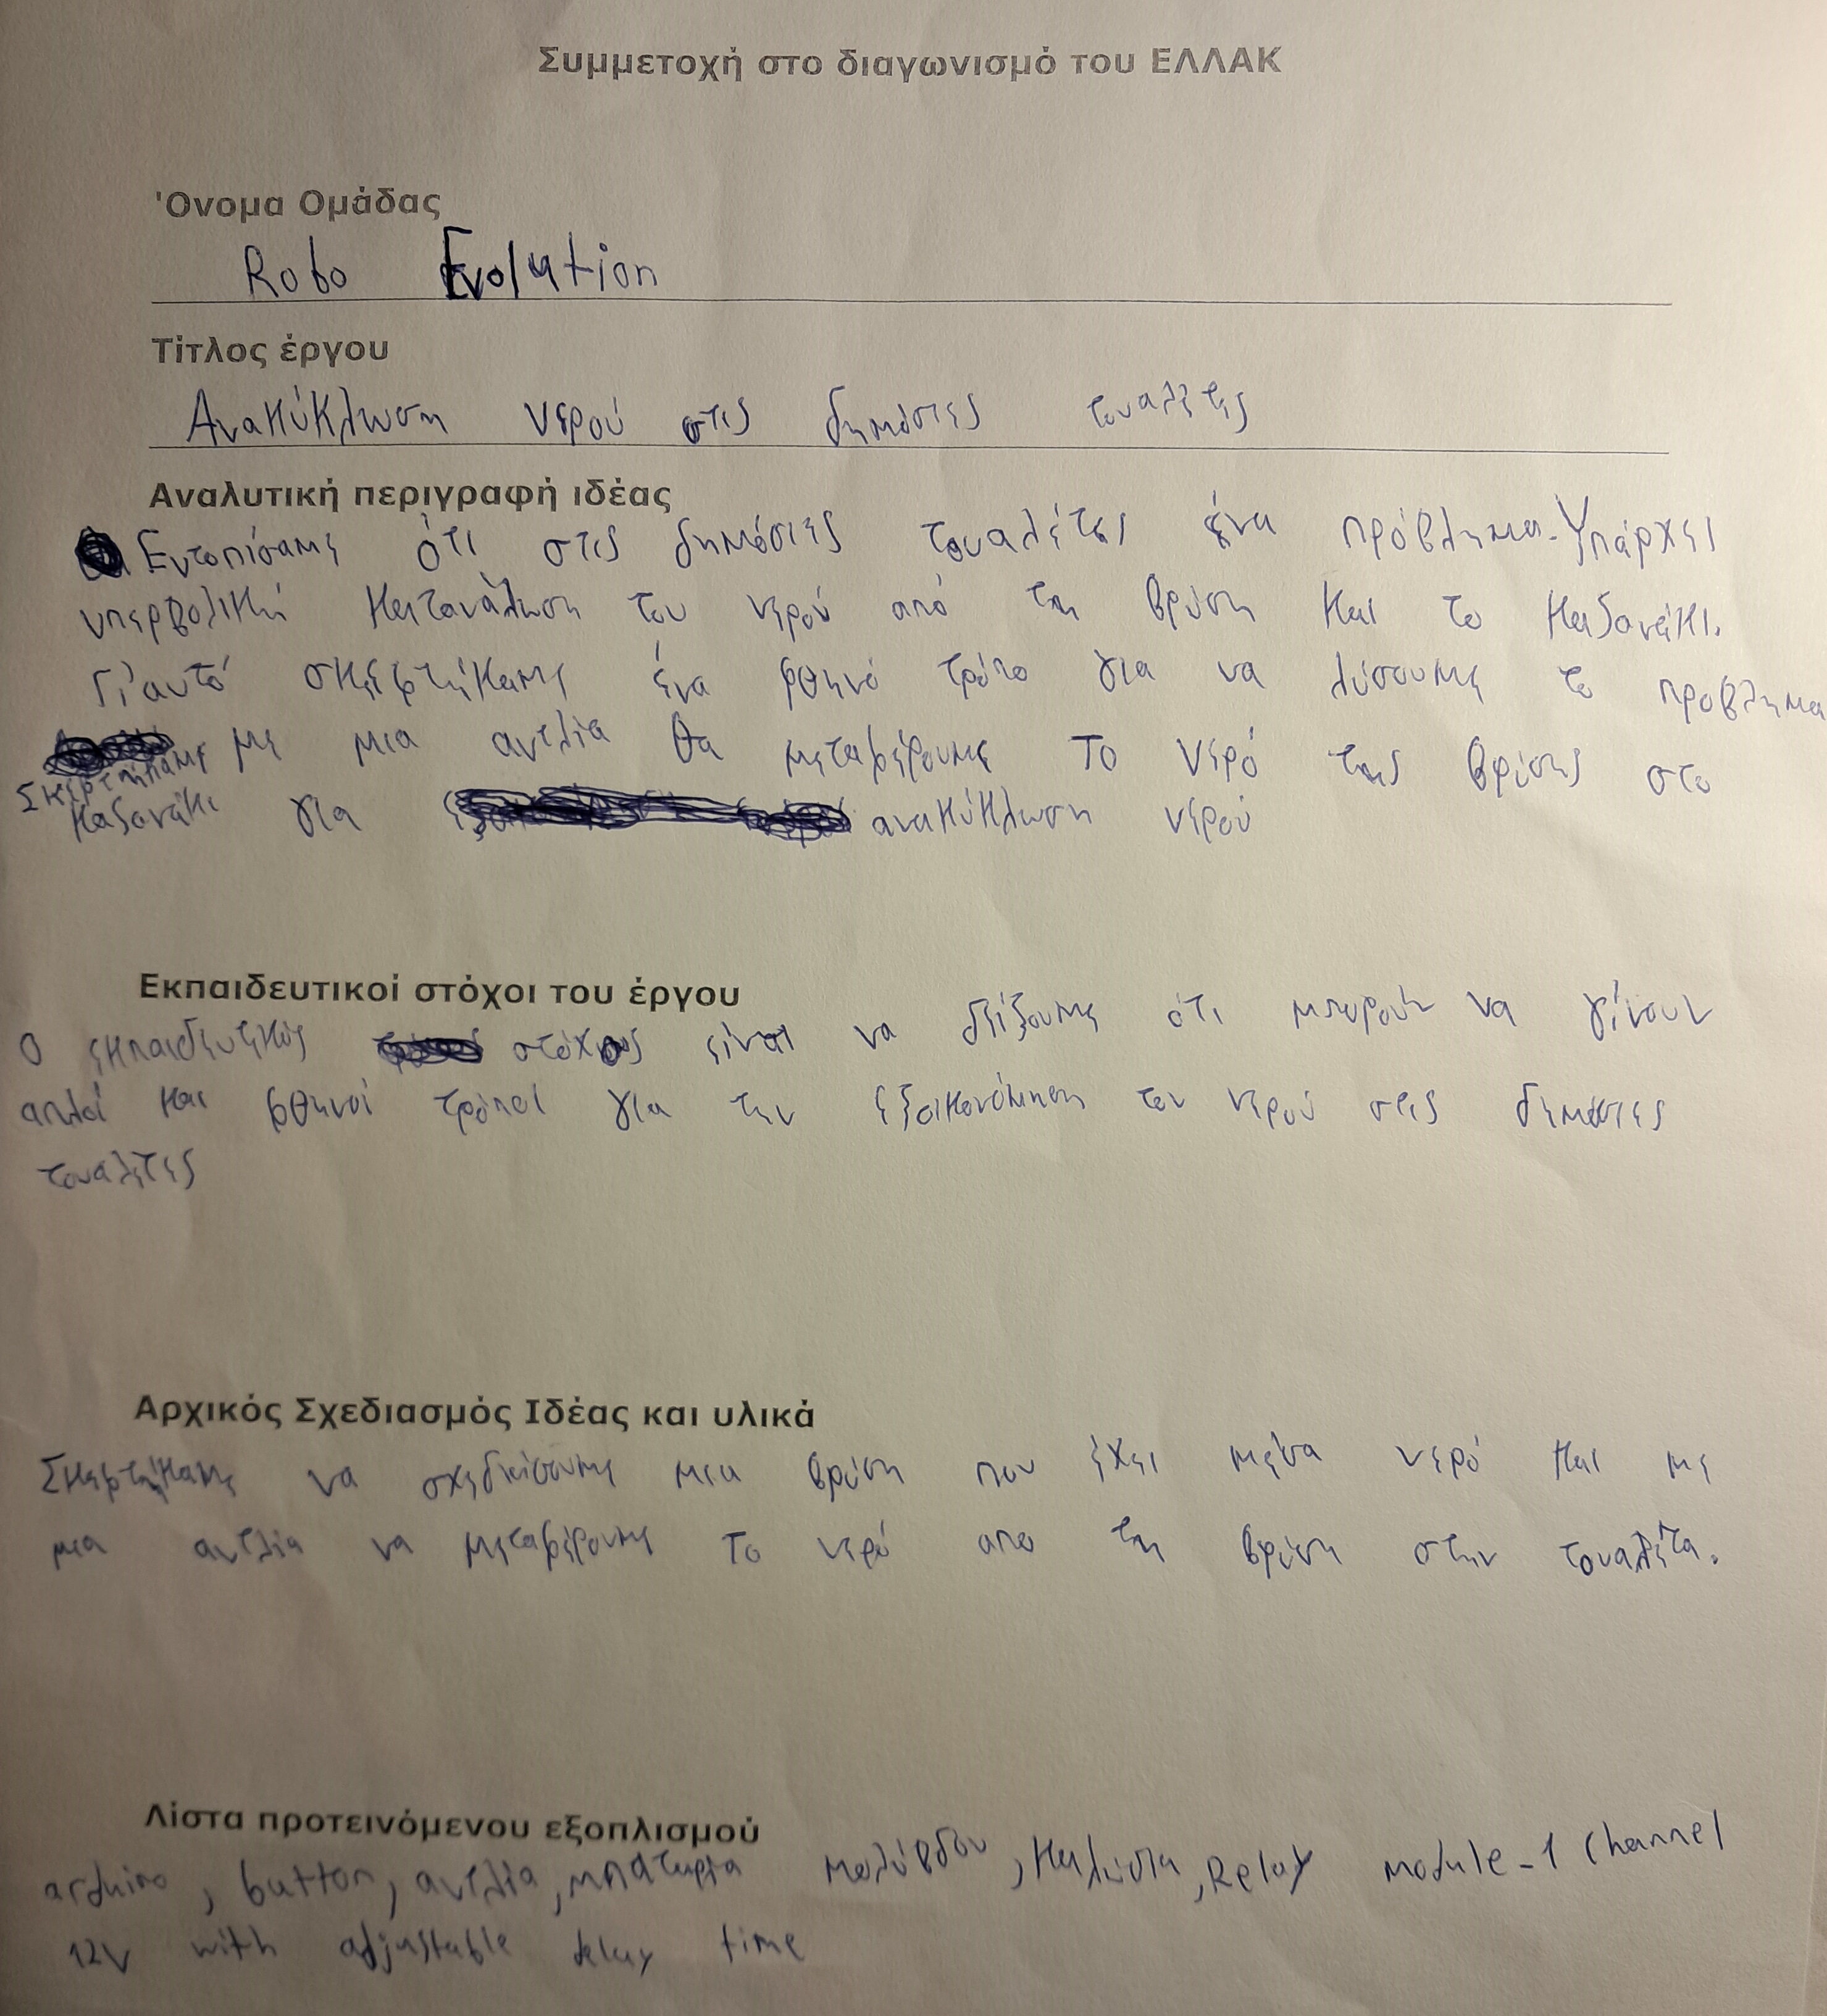 Συμμετοχή στο διαγωνισμό του ΕΛΛΑΚ
'Ονομα Ομάδας
Robo Evolution
Τίτλος έργου
Ανακύκλωση νερού στις δημόσιες τουαλέτες
Αναλυτική περιγραφή ιδέας
Εντοπίσαμε ότι στις δημόσιες τουαλέτες ένα πρόβλημα. Υπάρχει
υπερβολική κατανάλωση του νερού από τη βρύση και το καζανάκι.
Γι'αυτό σκεφτήκαμε ένα φθηνό τρόπο για να λύσουμε το προβλημα
Σκεφτήκαμε με μια αντλία θα μεταφέρουμε το νερό της βρύσης στο
καζανάκι για ανακύκλωση νερού
Εκπαιδευτικοί στόχοι του έργου
Ο εκπαιδευτικός στόχος είναι να δείξουμε ότι μπορούν να γίνουν
απλοί και φθηνοί τρόποι για την εξοικονόμηση του νερού στις δημόσιες
τουαλέτες
Αρχικός Σχεδιασμός Ιδέας και υλικά
Σκεφτήκαμε να σχεδιάσουμε μια βρύση που έχει μέσα νερό και με
μια αντλία να μεταφέρουμε το νερό απο τη βρύση στην τουαλέτα.
Λίστα προτεινόμενου εξοπλισμού
arduino, button, αντλία, μπαταρία μολύβδου, καλώδια, Relay module-1 channel
12V with adjustable delay time